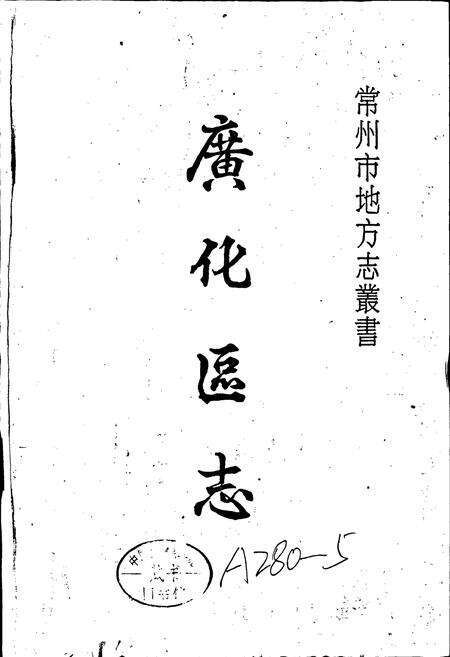 常州市地方志叢書
廣化區志
A280-5